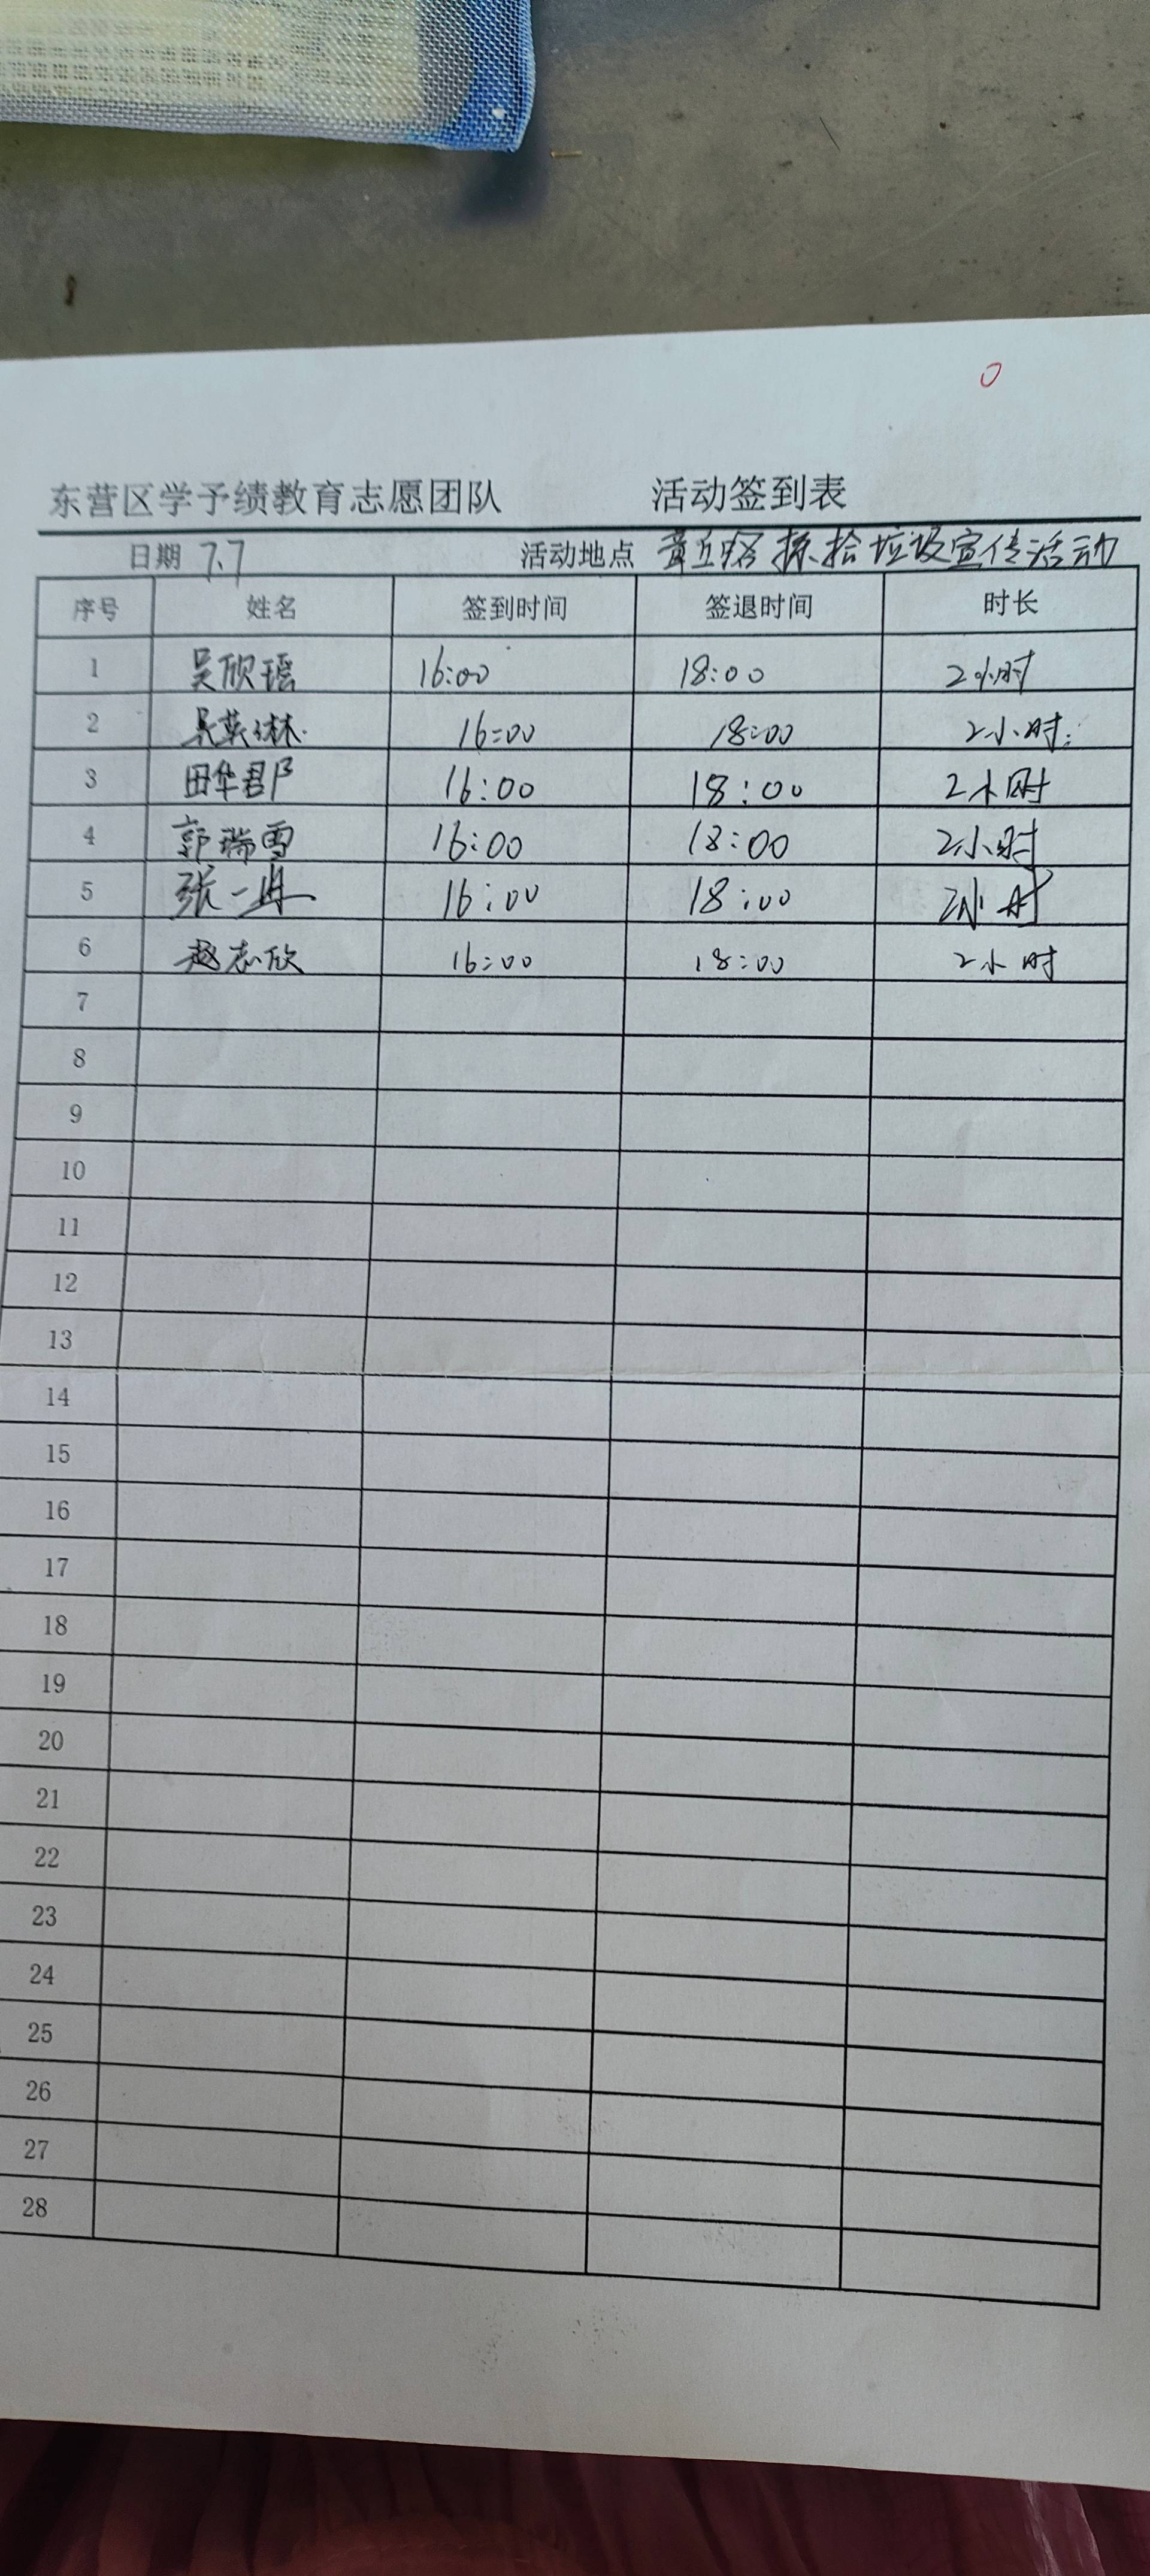 东营区学予绩教育志愿团队 活动签到表
日期 7.7 活动地点 黄丘路 捡拾垃圾宣传活动
序号 姓名 签到时间 签退时间 时长
1 吴欣瑶 16:00 18:00 2小时
2 吴英琳 16:00 18:00 2小时
3 田华君 16:00 18:00 2小时
4 郭瑞雪 16:00 18:00 2小时
5 张一冉 16:00 18:00 2小时
6 赵志欣 16:00 18:00 2小时
7
8
9
10
11
12
13
14
15
16
17
18
19
20
21
22
23
24
25
26
27
28